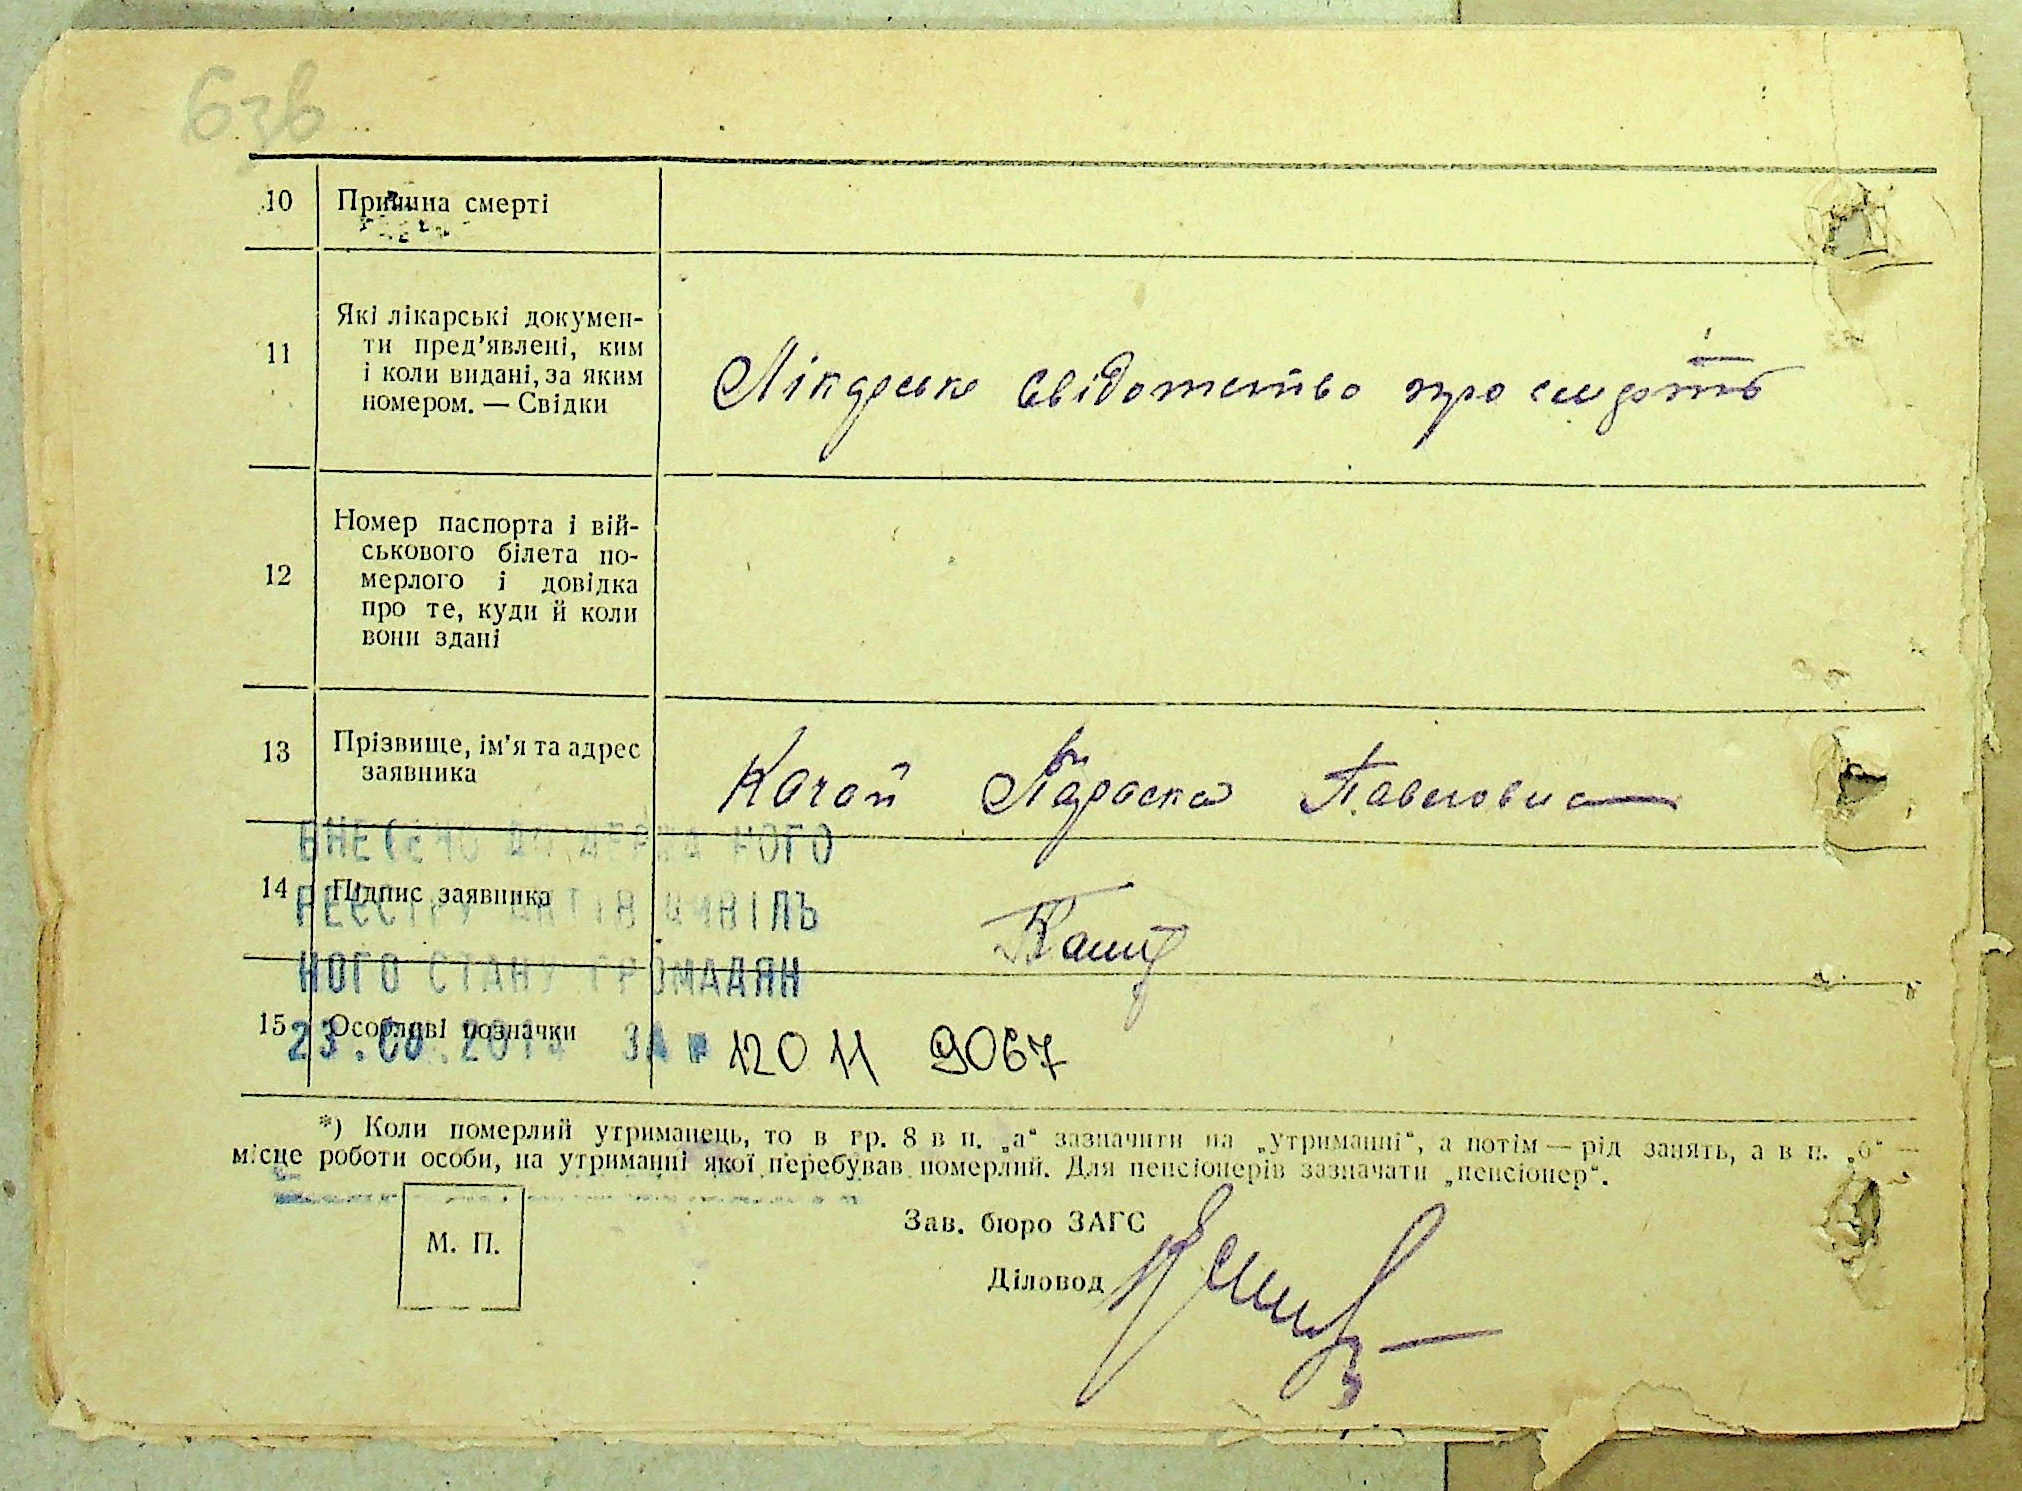 6зв
10 Причина смерті
11 Які лікарські докумен-
ти пред'явлені, ким
і коли видані, за яким
номером. — Свідки
Лікарське свідотство про смерть
12 Номер паспорта і вій-
ськового білета по-
мерлого і довідка
про те, куди й коли
вони здані
13 Прізвище, ім'я та адрес
заявника
Качай Параска Павловна
ВНЕСЕНО ДО ДЕРЖАВНОГО
14 Підпис заявника
РЕЄСТРУ АКТІВ ЦИВІЛЬ
НОГО СТАНУ ГРОМАДЯН
15 Особливі позначки
ЗА № 12011 9067
*) Коли померлий утриманець, то в гр. 8 в п. „а“ зазначити на „утриманні“, а потім — рід занять, а в п. „б“ —
місце роботи особи, на утриманні якої перебував померлий. Для пенсіонерів зазначати „пенсіонер“.
М. П.
Зав. бюро ЗАГС
Діловод